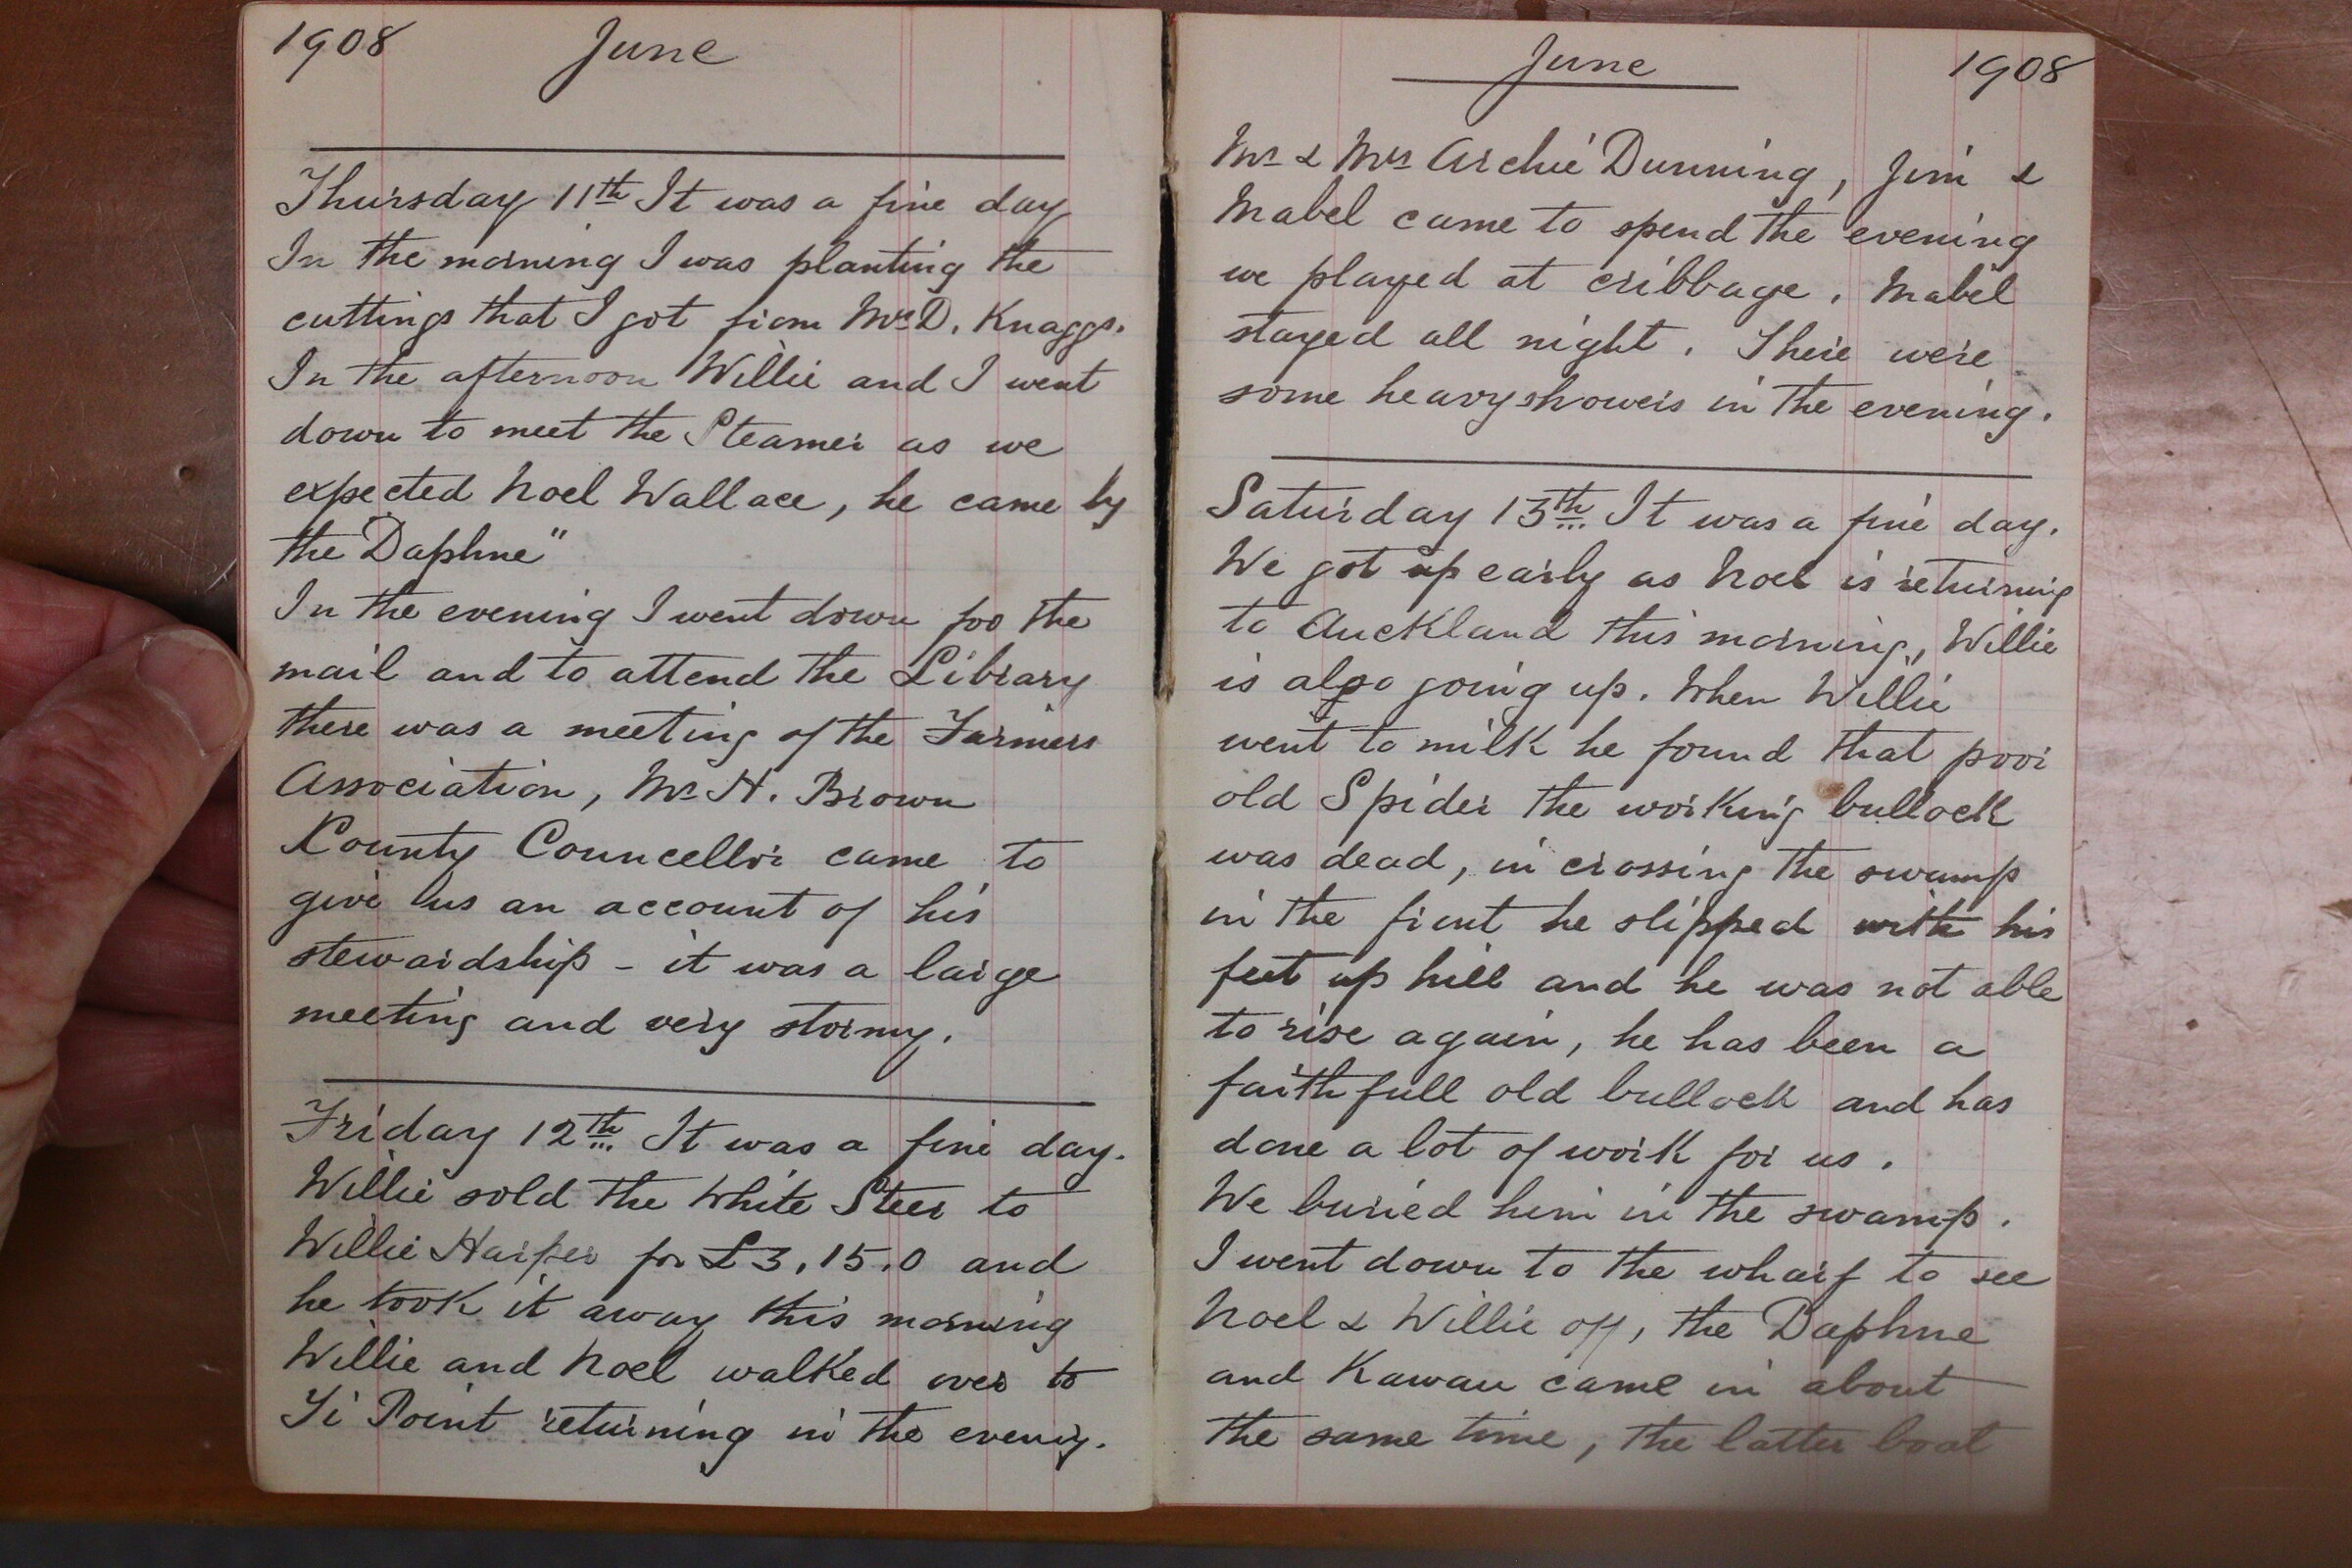 1908 June
Thursday 11th It was a fine day
In the morning I was planting the
cuttings that I got from Mrs D. Knaggs.
In the afternoon Willie and I went
down to meet the Steamer as we
expected Noel Wallace, he came by
the Daphne"
In the evening I went down for the
mail and to attend the Library
there was a meeting of the Farmers
Association, Mr H. Brown
County Councellor came to
give us an account of his
stewardship - it was a large
meeting and very stormy.
Friday 12th It was a fine day.
Willie sold the White Steer to
Willie Harper for £3.15.0 and
he took it away this morning
Willie and Noel walked over to
Ti Point returning in the evening.
June 1908
Mr & Mrs Archie Dunning, Jim &
Mabel came to spend the evening
we played at cribbage. Mabel
stayed all night. There were
some heavy showers in the evening.
Saturday 13th It was a fine day.
We got up early as Noel is returning
to Auckland this morning, Willie
is also going up. When Willie
went to milk he found that poor
old Spider the working bullock
was dead, in crossing the swamp
in the front he slipped with his
feet up hill and he was not able
to rise again, he has been a
faithfull old bullock and has
done a lot of work for us.
We buried him in the swamp.
I went down to the wharf to see
Noel & Willie off, the Daphne
and Kawau came in about
the same time, the latter boat